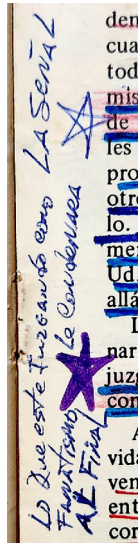 Lo que este juzgando como LA SEÑAL
Fanatismo le condenara
AL Final
den
cua
tod
mis
de
les
pro
otro
lo.
me
Ud.
allá
nar
juzg
con
A
vida
ven
ent
con